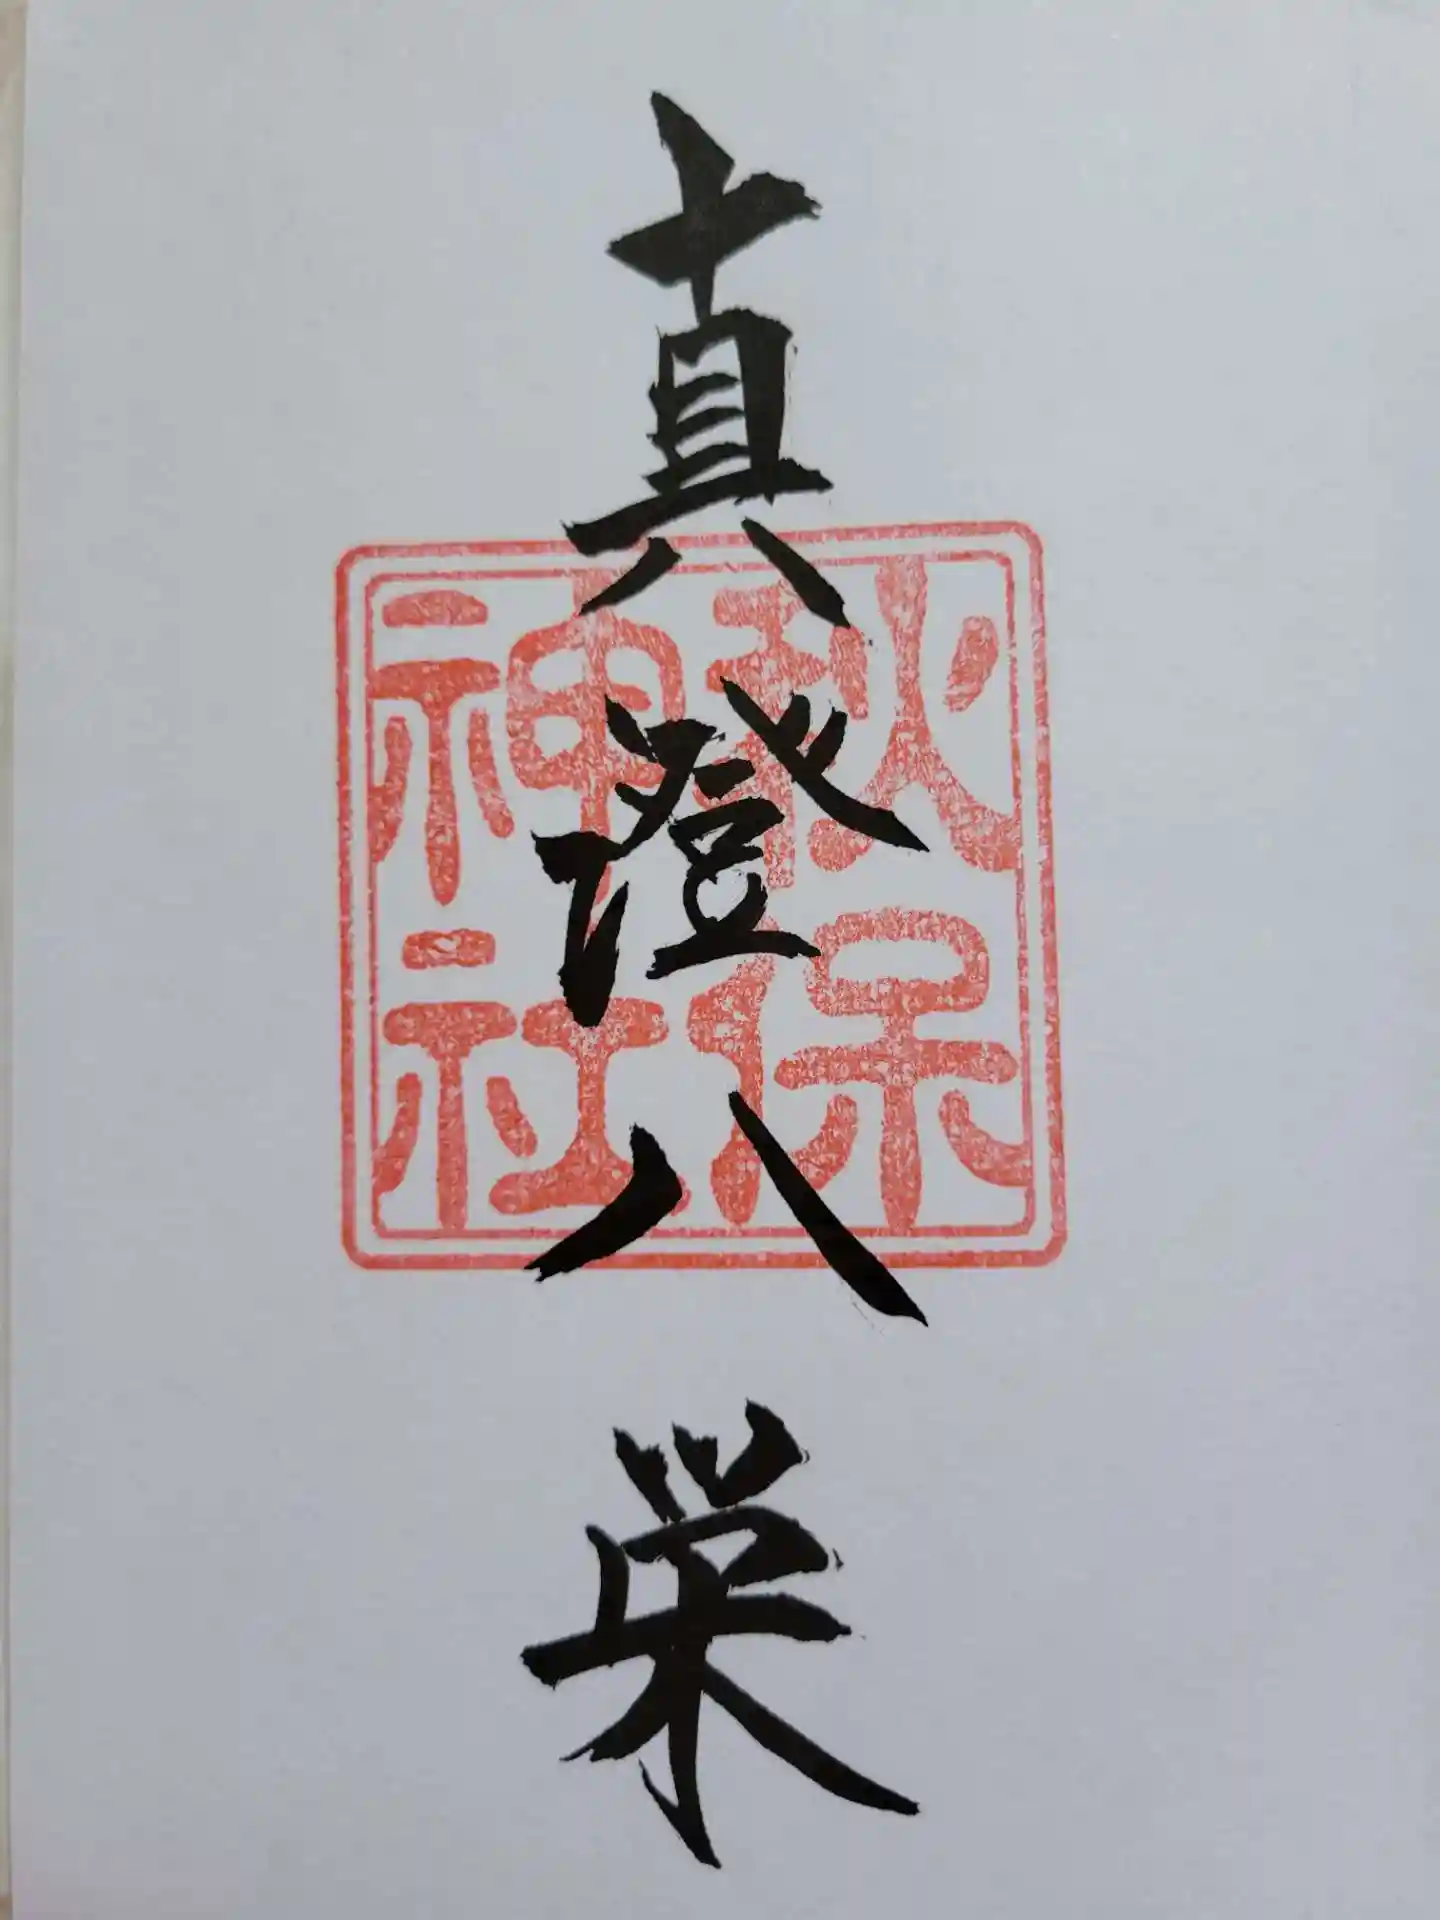 真澄八栄
秋保
神社